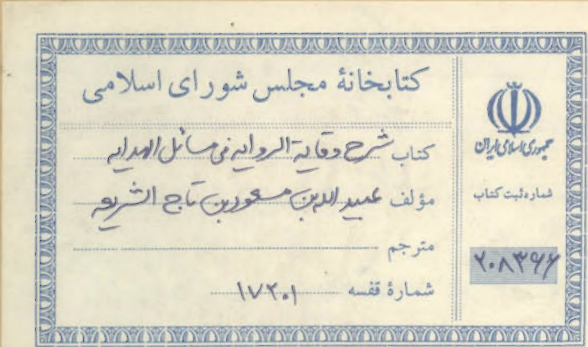 کتابخانهٔ مجلس شورای اسلامی
کتاب شرح وقایة الروایه فی مسائل الهدایه
مؤلف عبیدالله بن مسعود بن تاج الشریعه
مترجم
شمارهٔ قفسه ۱۷۲۰۱
جمهوری اسلامی ایران
شماره ثبت کتاب
۲۰۸۳۶۶